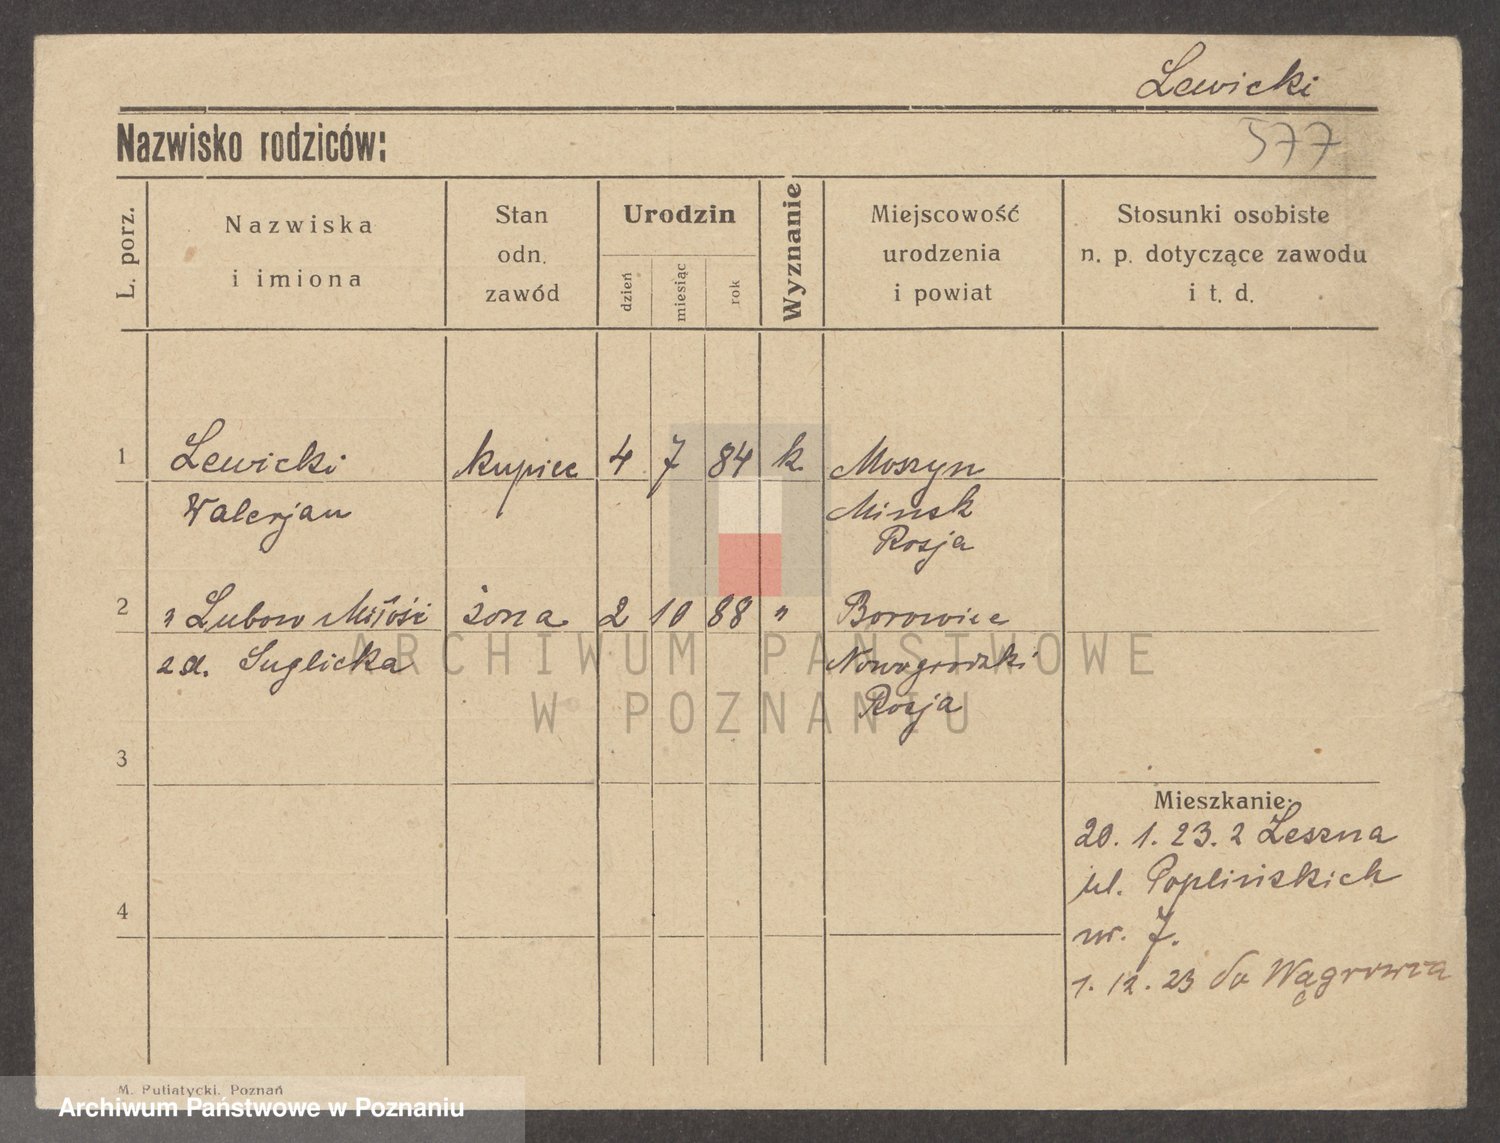 Lewicki
577
Nazwisko rodziców:
L. porz.
Nazwiska
i imiona
Stan
odn.
zawód
Urodzin
dzień
miesiąc
rok
Wyznanie
Miejscowość
urodzenia
i powiat
Stosunki osobiste
n. p. dotyczące zawodu
i t. d.
1 Lewicki kupiec 4 7 84 k Moszyn
Walerjan Minsk
Rosja
2 " Lubow Miłość żona 2 10 88 " Borowice
zd. Suglicka Nowogrodzki
Rosja
3
4
Mieszkanie:
20. 1. 23. z Leszna
ul. Poplińskich
nr. 7.
1. 12. 23 do Wągrowca
M. Putiatycki, Poznań
ARCHIWUM PAŃSTWOWE
W POZNANIU
Archiwum Państwowe w Poznaniu